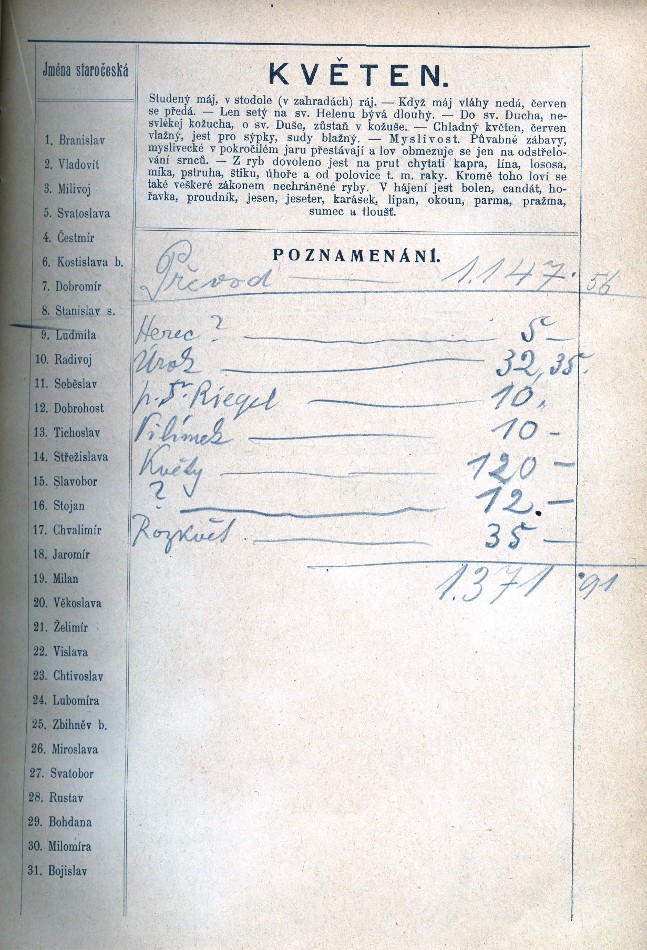 Jména staročeská
1. Branislav
2. Vladovít
3. Milivoj
5. Svatoslava
4. Čestmír
6. Kostislava b.
7. Dobromír
8. Stanislav s.
9. Ludmila
10. Radivoj
11. Soběslav
12. Dobrohost
13. Tichoslav
14. Střežislava
15. Slavobor
16. Stojan
17. Chvalimír
18. Jaromír
19. Milan
20. Věkoslava
21. Želimír
22. Vislava
23. Chtivoslav
24. Lubomíra
25. Zbihněv b.
26. Miroslava
27. Svatobor
28. Rustav
29. Bohdana
30. Milomíra
31. Bojislav
KVĚTEN.
Studený máj, v stodole (v zahradách) ráj. — Když máj vláhy nedá, červen
se předá. — Len setý na sv. Helenu bývá dlouhý. — Do sv. Ducha, ne-
svlékej kožucha, o sv. Duše, zůstaň v kožuše. — Chladný květen, červen
vlažný, jest pro sýpky, sudy blažný. — Myslivost. Půvabné zábavy,
myslivecké v pokročilém jaru přestávají a lov obmezuje se jen na odstřelo-
vání srnců. — Z ryb dovoleno jest na prut chytati kapra, lína, lososa,
míka, pstruha, štiku, úhoře a od polovice t. m. raky. Kromě toho loví se
také veškeré zákonem nechráněné ryby. V hájení jest bolen, candát, ho-
řavka, proudník, jesen, jeseter, karásek, lipan, okoun, parma, pražma,
sumec a tloušť.
POZNAMENÁNÍ.
Převod — 1.147.56
Herec? — 5 —
Úrok — 32,35.
p. Riegel — 10.
Vilímek — 10 —
Květy — 120 —
? — 12. —
Rozkvět — 35 —
1.371.91